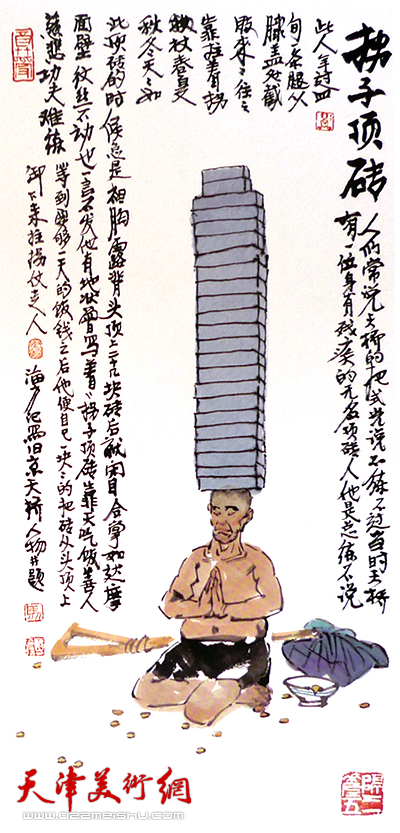 拐子顶砖
人们常说天桥的把式光说不练不过当时天桥
有一位身有残疾的无名顶砖人他是光练不说
此人年过四
旬一条腿从
膝盖处截
股来来往往
靠拄着拐
杖春夏
秋冬天天如
此顶砖的时候总是袒胸露背头顶上二十块砖后就闭目合掌如达摩
面壁纹丝不动也一言不发他有地状曾写着拐子顶砖靠天吃饭善人
慈悲功夫难练 等到够一天的饭钱之后他便自己一块一块的把砖从头顶上
卸下来拄拐仗走人
旧京天桥人物并题
天津美術網
www.022meishu.com